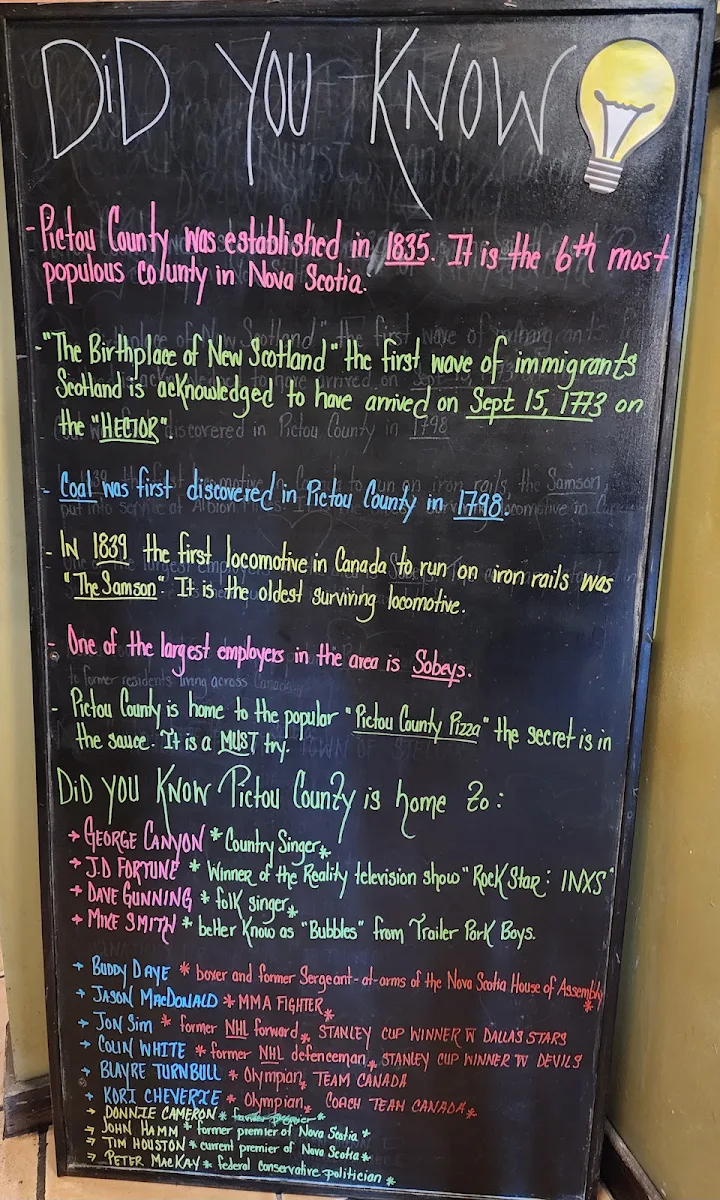 DiD YOU KNOW
- Pictou County was established in 1835. It is the 6th most
populous county in Nova Scotia.
- "The Birthplace of New Scotland" the first wave of immigrants
Scotland is acknowledged to have arrived on Sept 15, 1773 on
the "HECTOR".
- Coal was first discovered in Pictou County in 1798.
- IN 1839 the first locomotive in Canada to run on iron rails was
"The Samson". It is the oldest surviving locomotive.
- One of the largest employers in the area is Sobeys.
to former residents living across Canada
- Pictou County is home to the popular "Pictou County Pizza" the secret is in
the sauce. It is a MUST try.
DiD YOU KNOW Pictou County is home to:
→ GEORGE CANYON * Country Singer *
→ J.D FORTUNE * Winner of the Reality television show "Rock Star: INXS"
→ DAVE GUNNING * folk singer *
→ MIKE SMITH * better Know as "Bubbles" from Trailer Park Boys.
→ BUDDY DAYE * boxer and former Sergeant-at-arms of the Nova Scotia House of Assembly *
→ JASON MACDONALD * MMA FIGHTER *
→ JON SIM * former NHL forward * STANLEY CUP WINNER W DALLAS STARS
→ COLIN WHITE * former NHL defenceman * STANLEY CUP WINNER W DEVILS
→ BLAYRE TURNBULL * Olympian * TEAM CANADA
→ KORI CHEVERIE * Olympian * COACH TEAM CANADA *
→ DONNIE CAMERON *
→ JOHN HAMM * former premier of Nova Scotia *
→ TIM HOUSTON * current premier of Nova Scotia *
→ PETER MacKAY * federal conservative politician *